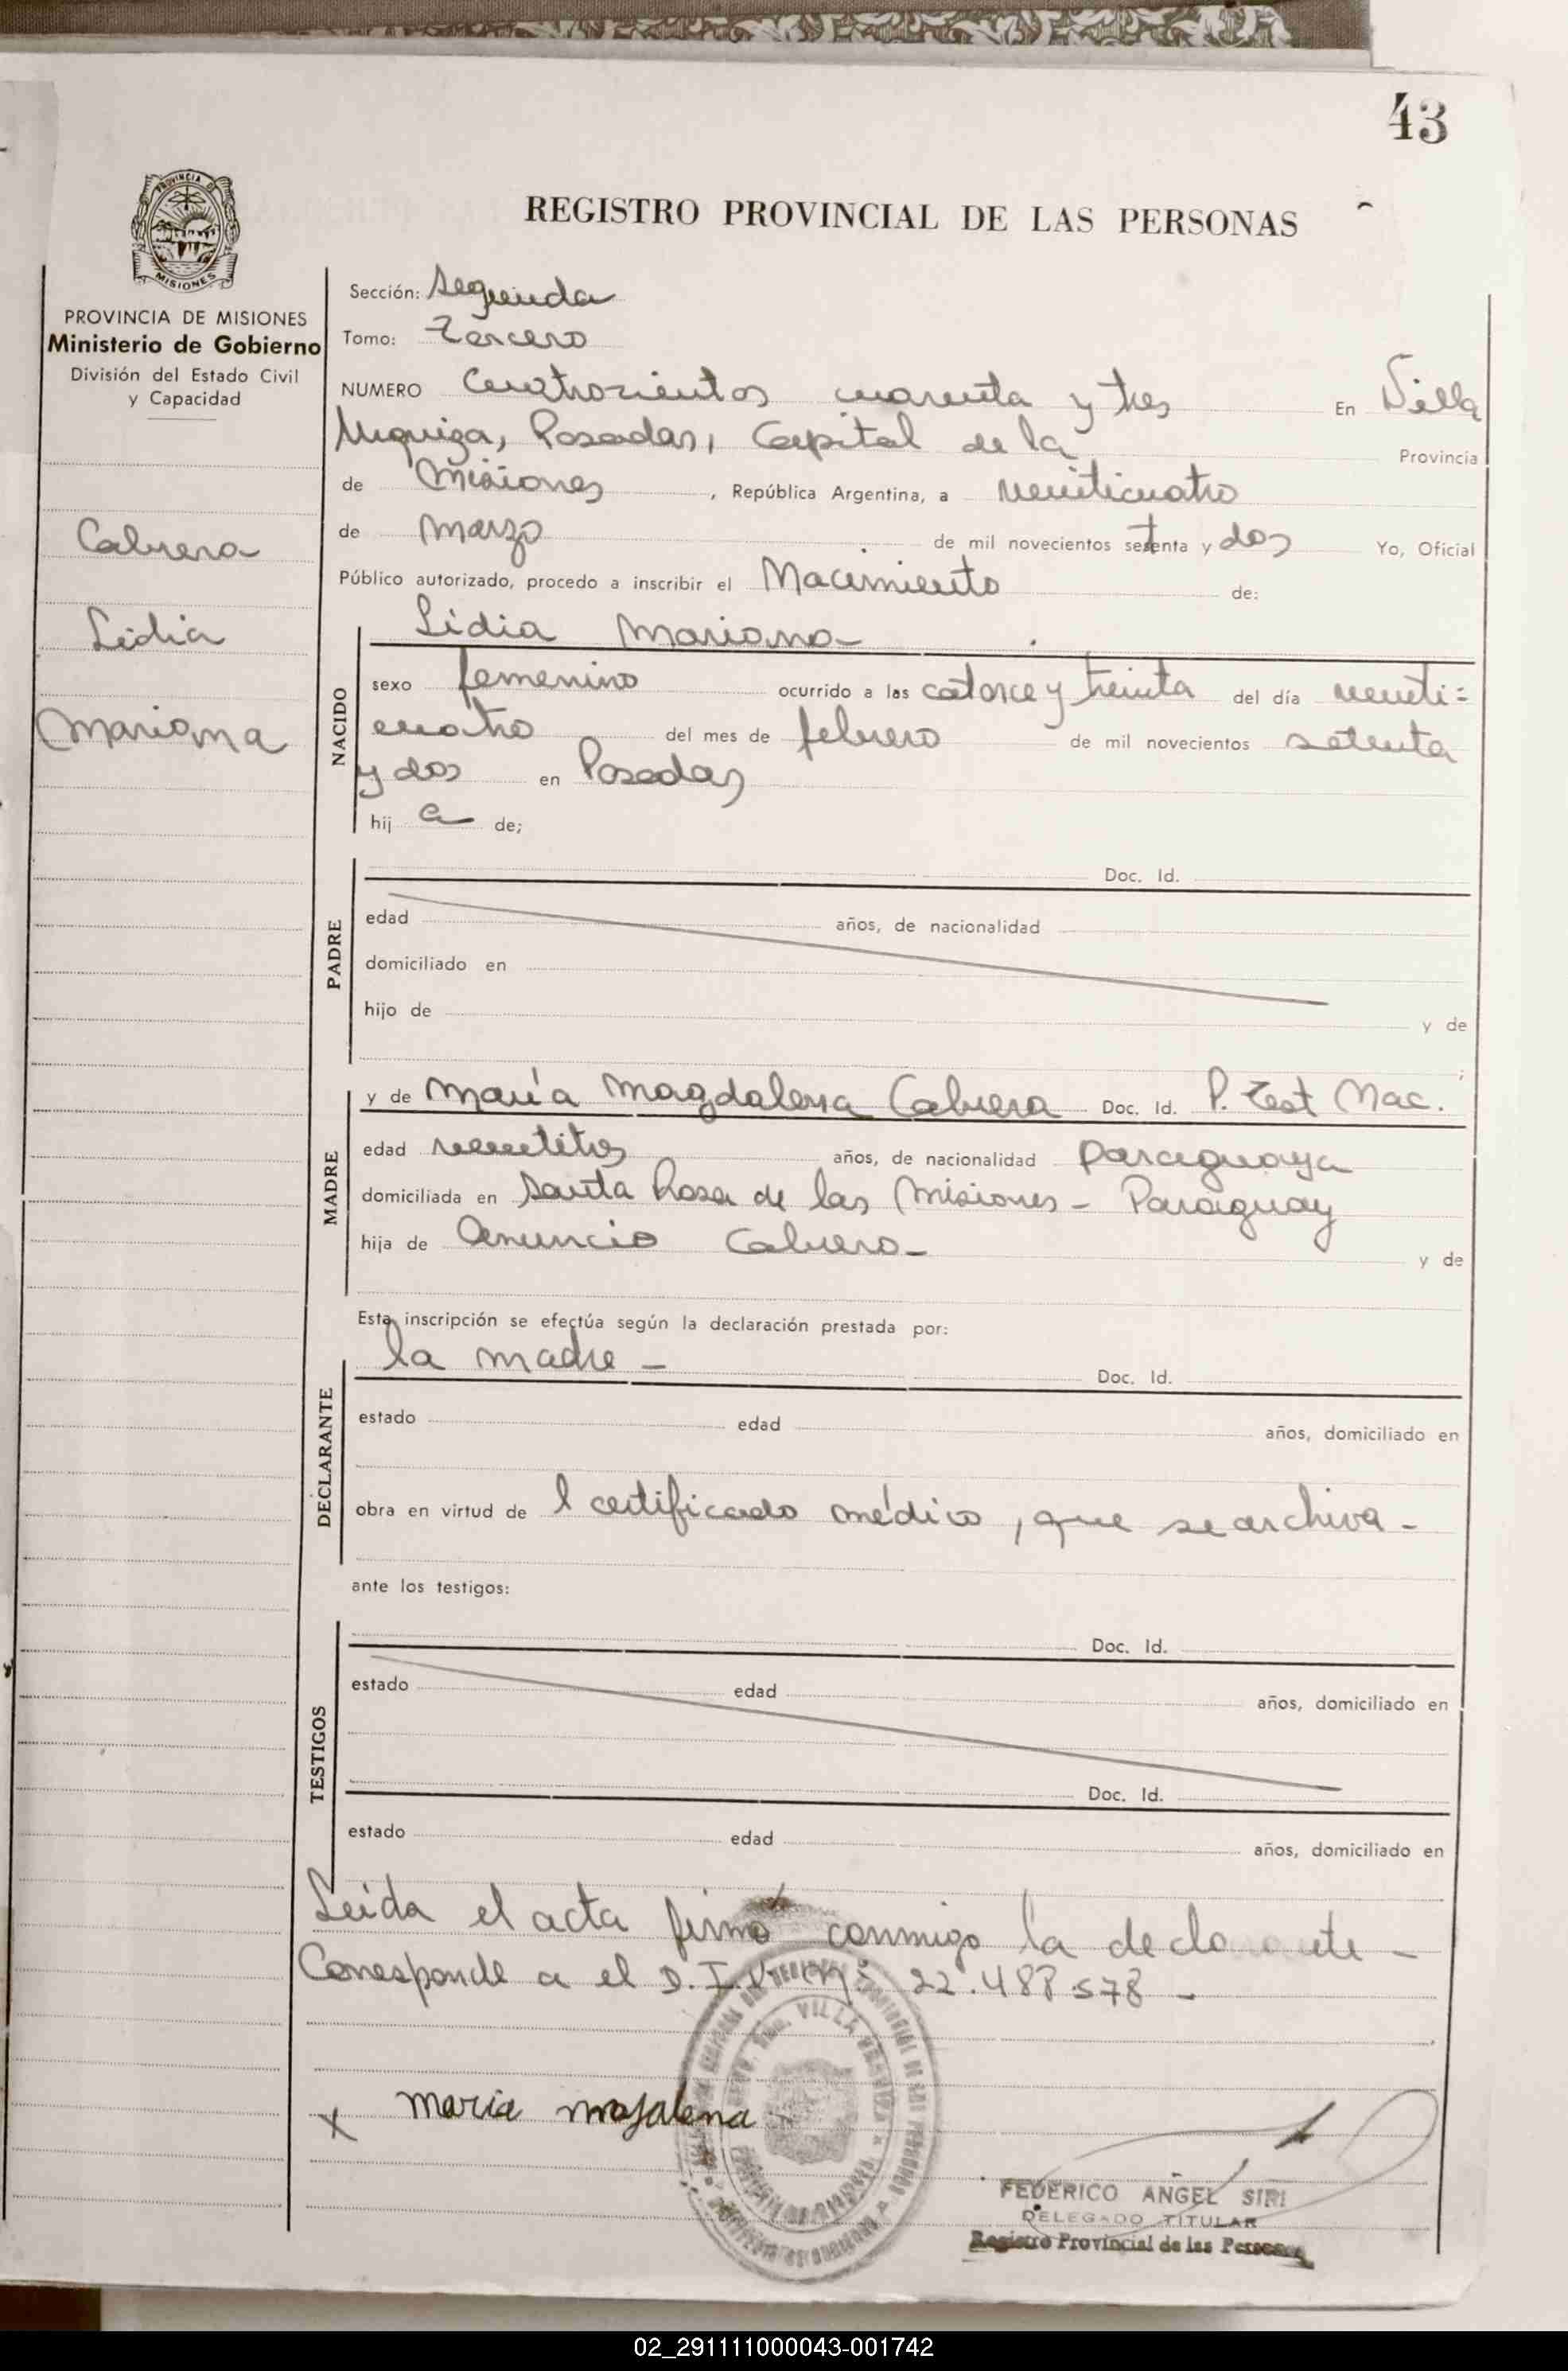 43
PROVINCIA DE
MISIONES
REGISTRO PROVINCIAL DE LAS PERSONAS
PROVINCIA DE MISIONES
Ministerio de Gobierno
División del Estado Civil
y Capacidad
Cabrera
Lidia
Mariana
Sección: Segunda
Tomo: Tercero
NUMERO Cuatrocientos cuarenta y tres En Villa
Urquiza, Posadas, Capital de la Provincia
de Misiones, República Argentina, a veinticuatro
de Marzo de mil novecientos setenta y dos Yo, Oficial
Público autorizado, procedo a inscribir el Nacimiento de:
NACIDO
Lidia Mariana-
sexo femenino ocurrido a las catorce y treinta del día veinti=
cuatro del mes de febrero de mil novecientos setenta
y dos en Posadas
hij a de;
PADRE
Doc. Id.
edad años, de nacionalidad
domiciliado en
hijo de y de
;
MADRE
y de María Magdalena Cabrera Doc. Id. P. Test Nac.
edad veintitres años, de nacionalidad paraguaya
domiciliada en Santa Rosa de las Misiones - Paraguay
hija de Anuncio Cabrera- y de
Esta inscripción se efectúa según la declaración prestada por:
DECLARANTE
la madre - Doc. Id.
estado edad años, domiciliado en
obra en virtud de l certificado médico, que se archiva-
ante los testigos:
TESTIGOS
Doc. Id.
estado edad años, domiciliado en
Doc. Id.
estado edad años, domiciliado en
Leída el acta firmó conmigo la declarante -
Corresponde a el D.I. 22.488.578 -
VILLA URQUIZA
X maria magalena
FEDERICO ANGEL SIRI
DELEGADO TITULAR
Registro Provincial de las Personas
02_291111000043-001742